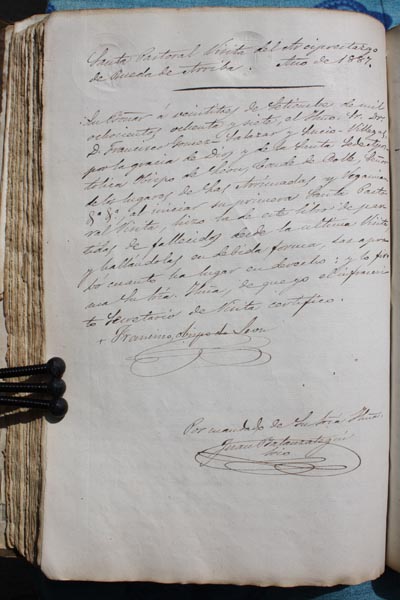 Santa Pastoral Visita del Arciprestazgo
de Rueda de Arriba. Año de 1887.
En Romar á veintitres de Setiembre de mil
ochocientos ochenta y siete, el Iltmo. Sr. Dr.
D. Francisco Gomez Salazar y Lucio Villegas
por la gracia de Dios y de la Santa Sede Apos
tólica Obispo de Leon, Conde de Colle, Señor
de los lugares de las Arrimadas y Vegamian
&ª &ª al iniciar su primera Santa Pasto
ral Visita, hizo la de este libro de par
tidas de fallecidos desde la ultima Visita
y hallándolas en debida forma, las aprobó
cuanto ha lugar en derecho: y lo fir
ma Su Sria. Iltma., de que yo el infrascri
to Secretario de Visita certifico.
+ Francisco, Obispo de Leon
Por mandado de Su Sria Iltma.
Juan
Srio